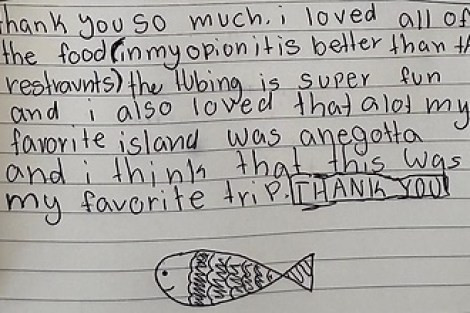 hank you so much. i loved all of
the food (in my opion it is better than th
restraunts) the tubing is super fun
and i also loved that alot my
favorite island was anegotta
and i think that this was
my favorite trip. THANK YOU